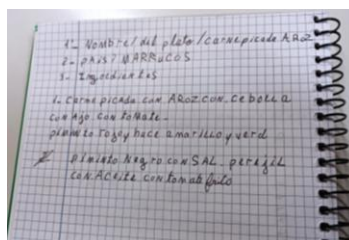 1º- Nombre/del plato/carne picada AROZ
2- pais/MARRUCOS
3- Ingredientes
1- Carne picada con AROZ con cebolla
con Ajo con tomate.
pimiento Rojo y hace amarillo y verd
2 pimiento Negro con SAL. perejil
con Aceite con tomate frito